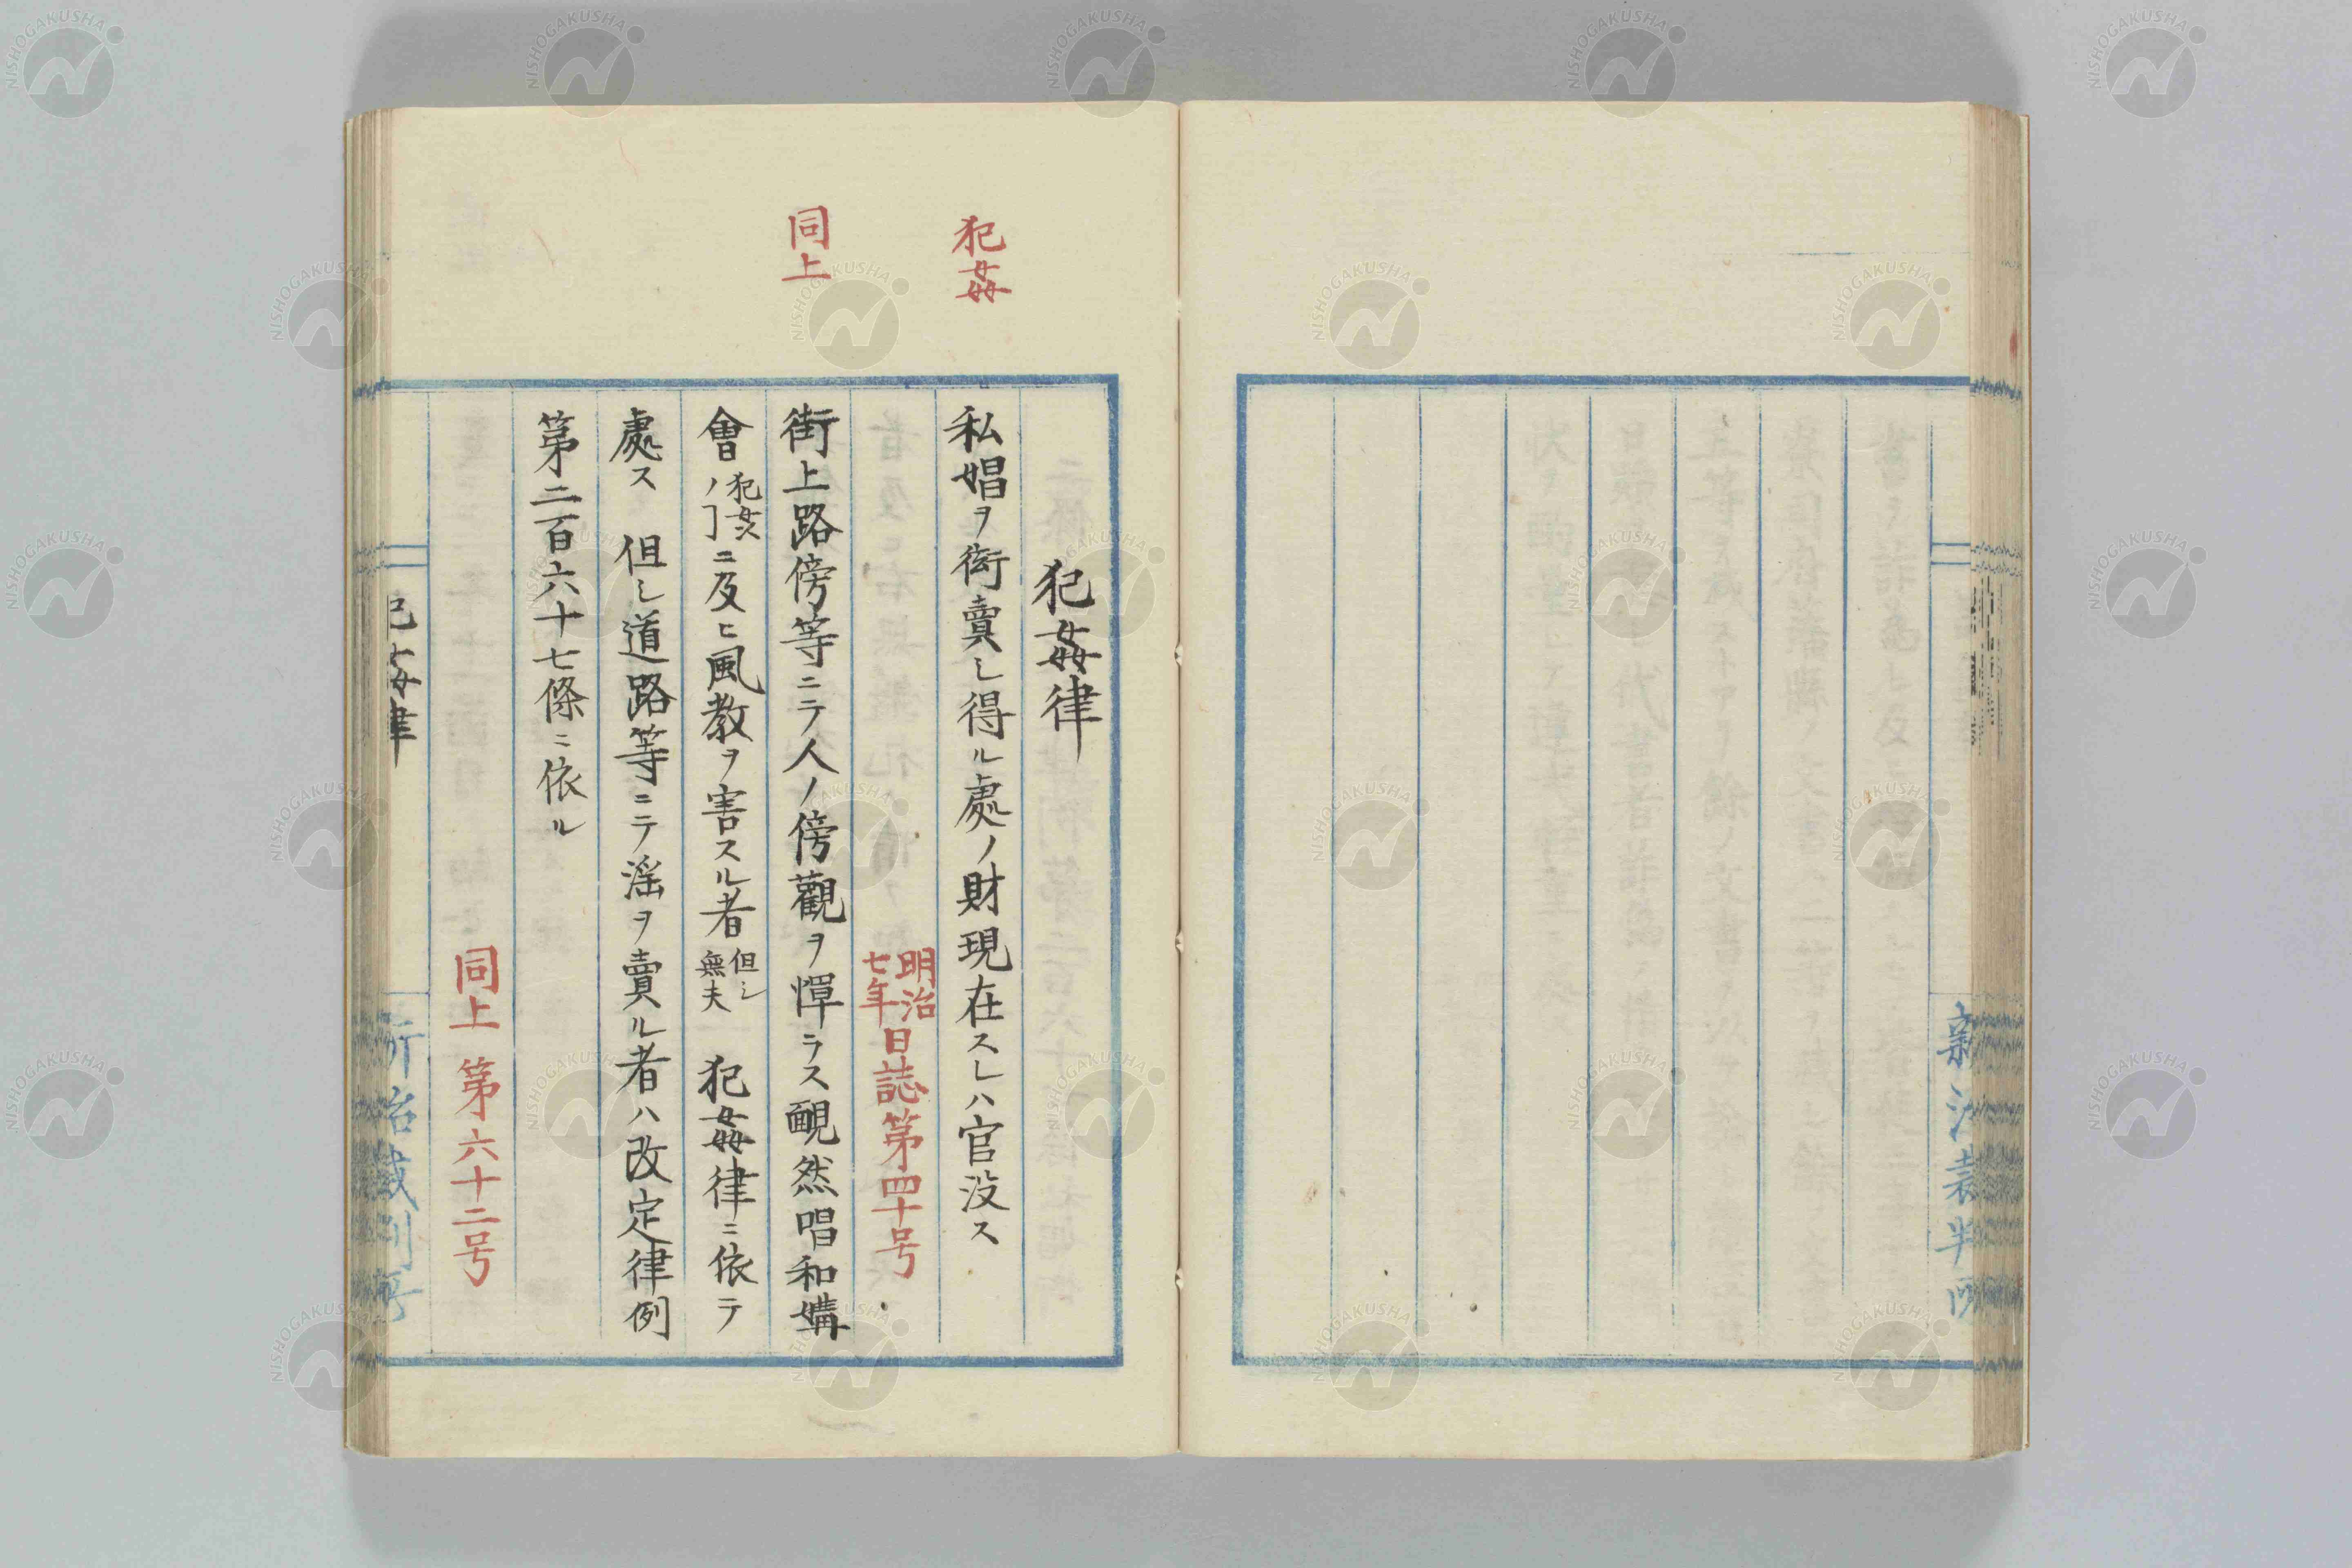 犯姦
同上
犯姦律
私娼ヲ衒賣シ得ル處ノ財現在スレハ官没ス
明治七年日誌第四十号
街上路傍等ニテ人ノ傍觀ヲ憚ラス靦然唱和媾
會犯姦ノヿニ及ヒ風教ヲ害スル者但シ無夫 犯姦律ニ依テ
處ス 但シ道路等ニテ淫ヲ賣ル者ハ改定律例
第二百六十七條ニ依ル
同上 第六十二号
犯姦律
新治裁判所
NISHOGAKUSHA